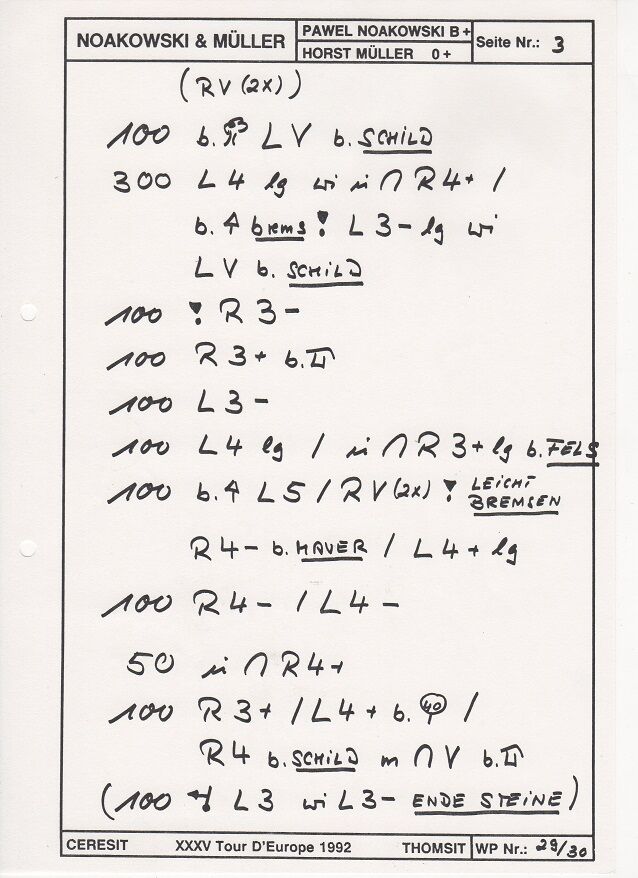 NOAKOWSKI & MÜLLER
PAWEL NOAKOWSKI B +
HORST MÜLLER 0 +
Seite Nr.: 3
(RV (2x))
100 b. LV b. SCHILD
300 L4 lg wi in ∩ R4+ /
b. ↑ brems ! L3- lg wi
LV b. SCHILD
100 ! R3-
100 R3+ b. II
100 L3-
100 L4 lg / in ∩ R3+ lg b. FELS
100 b. ↑ L5 / RV (2x) ! LEICHT
BREMSEN
R4- b. MAUER / L4+ lg
100 R4- / L4-
50 in ∩ R4+
100 R3+ / L4+ b. 40 /
R4 b. SCHILD m ∩ V b. II
(100 ! L3 wi L3- ENDE STEINE)
CERESIT XXXV Tour D'Europe 1992 THOMSIT WP Nr.: 29/30